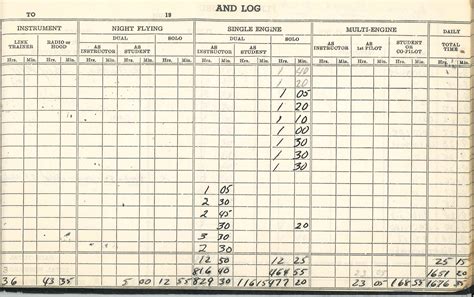 TO 19 AND LOG
INSTRUMENT NIGHT FLYING SINGLE ENGINE MULTI-ENGINE DAILY
LINK TRAINER RADIO or HOOD DUAL SOLO DUAL SOLO AS INSTRUCTOR AS 1st PILOT STUDENT OR CO-PILOT TOTAL TIME
AS INSTRUCTOR AS STUDENT AS INSTRUCTOR AS STUDENT
Hrs. Min. Hrs. Min. Hrs. Min. Hrs. Min. Hrs. Min. Hrs. Min. Hrs. Min. Hrs. Min. Hrs. Min. Hrs. Min. Hrs. Min. Hrs. Min.
1 40
1 20
1 05
1 20
1 10
1 00
1 30
1 30
1 30
1 05
2 30
2 45
30 20
3 30
2 30
12 50 12 25 25 15
816 40 464 55 23 05 1651 20
36 43 35 5 00 12 55 829 30 116 15 477 20 23 05 168 55 1676 35